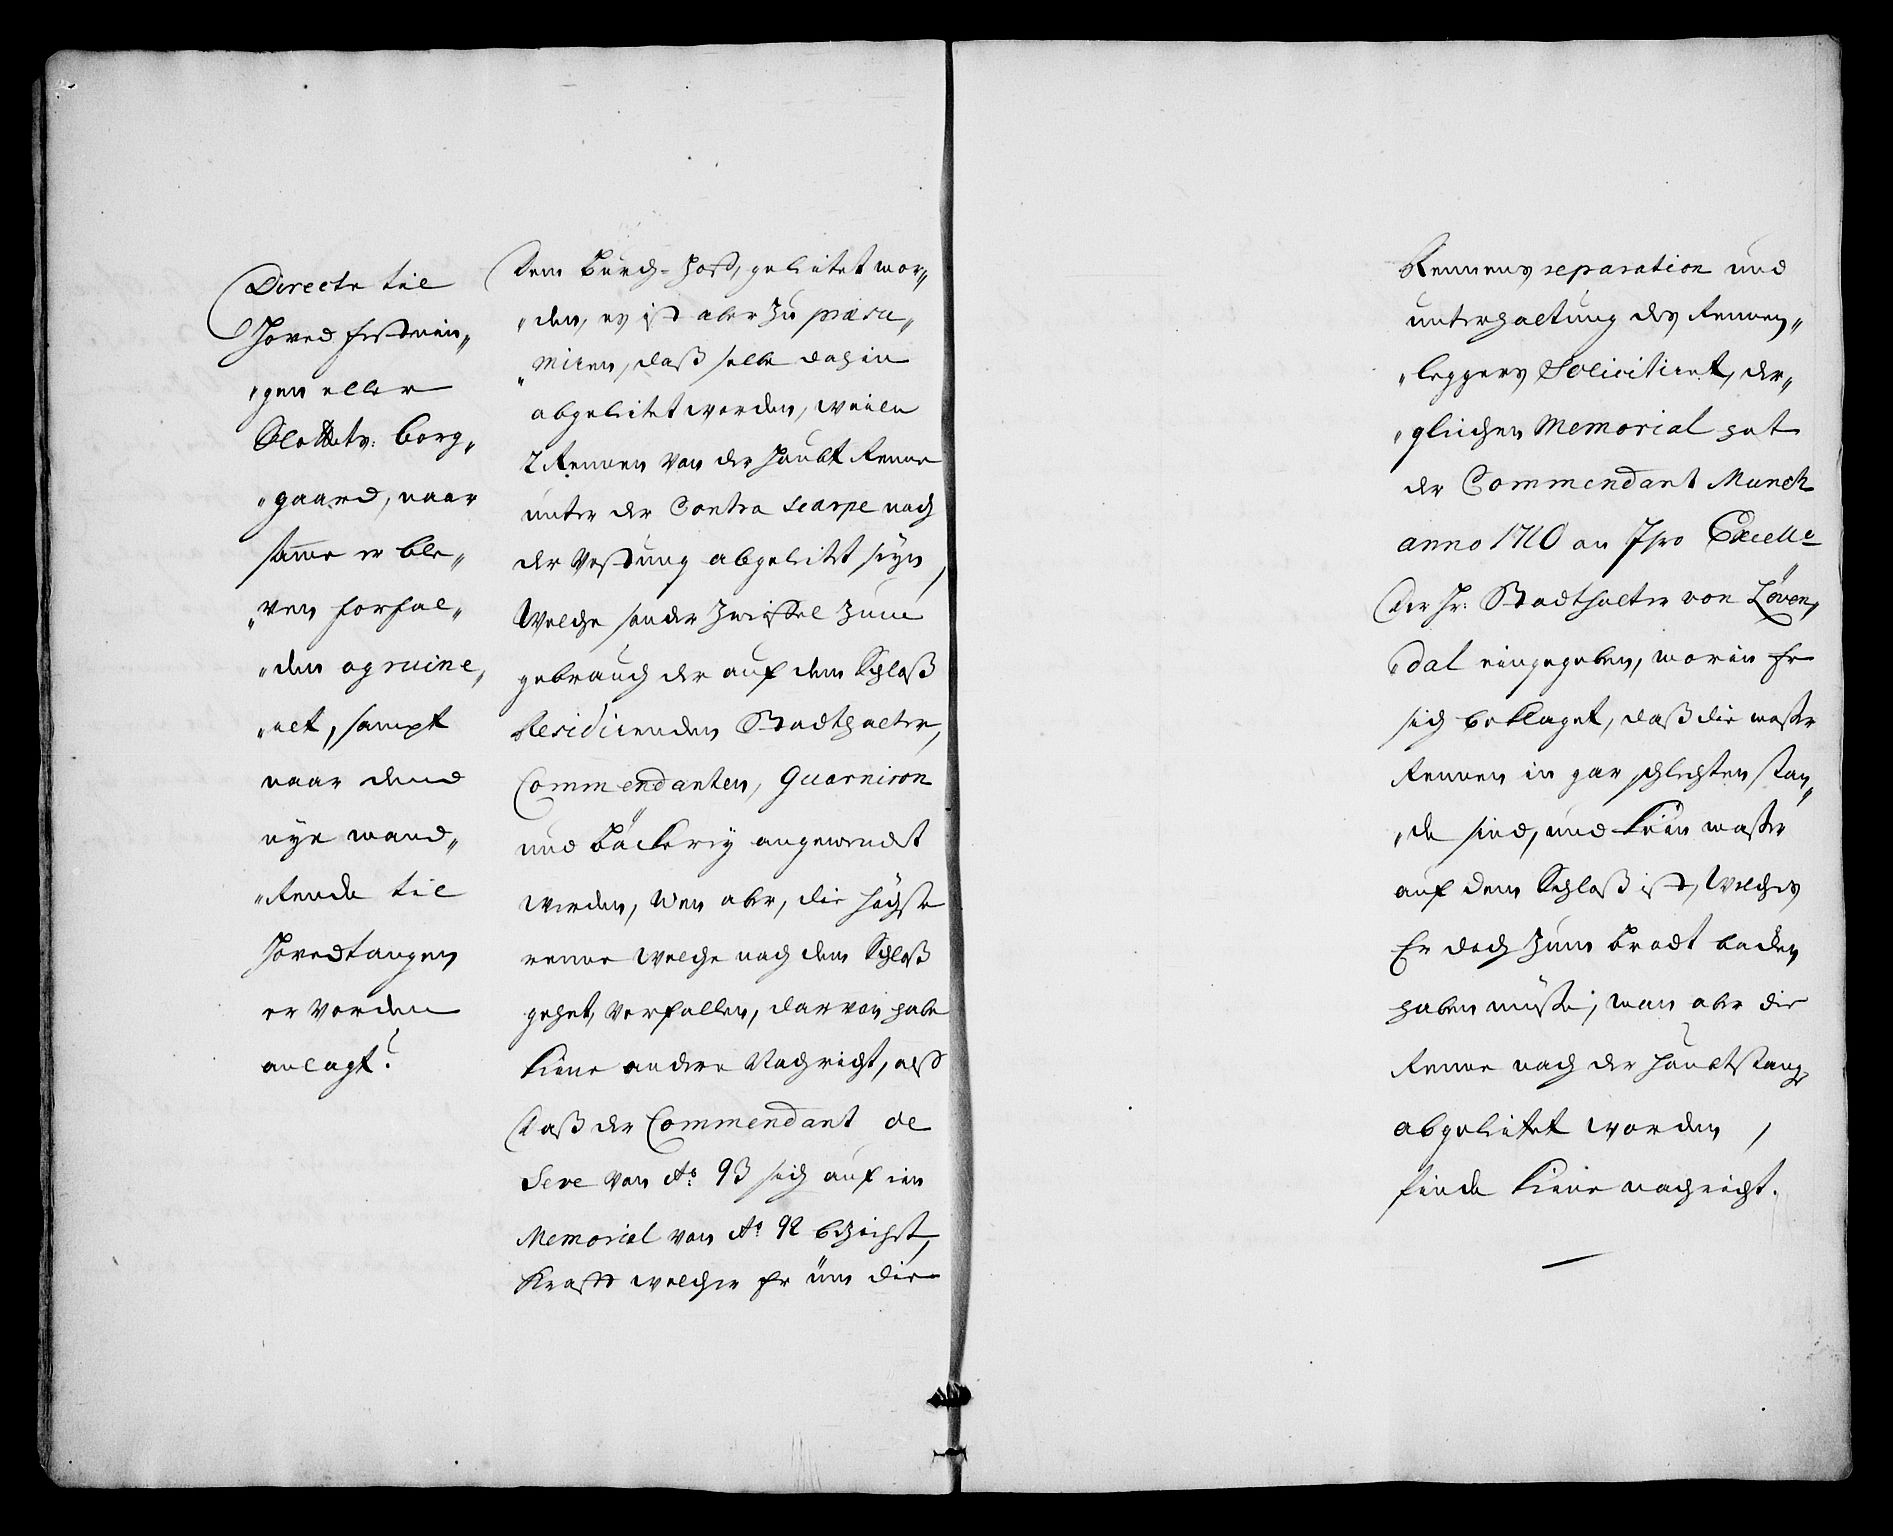 Directe til
Hoved festnin„
„gen eller
Slottets: borg„
„gaard, naar
samme er ble„
„ven forfal„
„den og ruine„
„ret, sampt
naar dend
nye wand„
„Rende til
Hovedtangen
er vorden
anlagt?
dem Burch-Hoff, geleitet wor„
„den, es ist aber zu præsu„
„miren, daß selbe dahin
abgeleitet worden, weile
2 Rennen von der Haubt Renne
unter der Contra Scarpe nach
der Vestung abgeleitet seyn,
Welche sonder Zweiffel zum
gebrauch der auf dem Schloß
Residirenden Stadthalter,
Commendanten, Guarnison
und Bäckerey angewendet
werden, Wen aber, die höchste
renne Welche nach dem Schloß
gehet, Verfallen, darvon habe
keine andere Nachricht, alß
daß der Commendant de
Seve von Ao: 93 sich auf ein
Memorial von Ao: 92 beziehet,
Krafft welcher Er üm die
Rennens reparation und
unterhaltung des Rennen„
„leggers Solicitiret, der„
„gleichen Memorial hat
der Commendant Munch
anno 1710 an Ihro Excelle
der Hr: Stadthalter von Løven„
„dal eingegeben, worin Er
sich beklaget, daß die wasser
Rennen in gar schlechten stan„
„de sind, und kein wasser
auf dem Schloß ist, Welches
Er doch zum brodt backen
haben müsse; wan aber die
Renne nach der Haubtstang
abgeleitet worden,
finde keine nachricht.